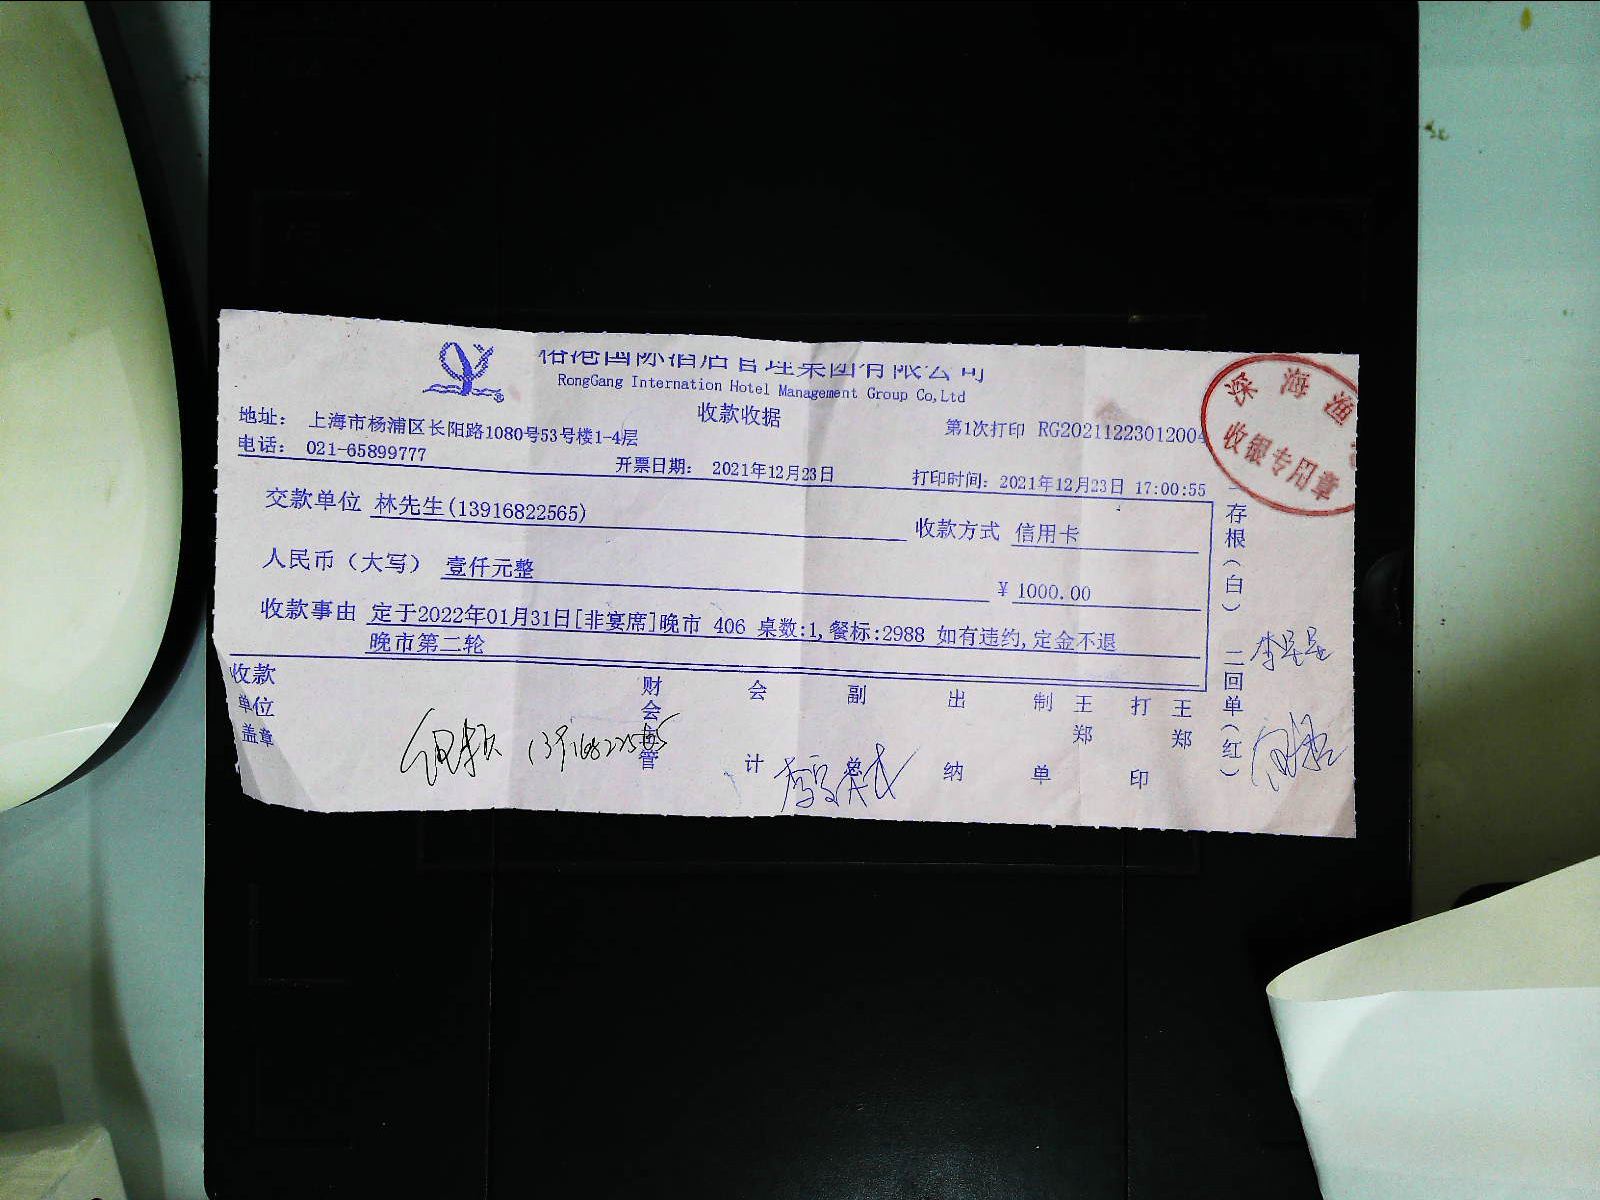 裕港国际酒店管理集团有限公司
RongGang Internation Hotel Management Group Co,Ltd
收款收据
地址： 上海市杨浦区长阳路1080号53号楼1-4层
第1次打印 RG20211223012004
电话： 021-65899777
开票日期： 2021年12月23日
打印时间：2021年12月23日 17:00:55
深海渔
收银专用章
交款单位 林先生(13916822565)
收款方式 信用卡
人民币（大写） 壹仟元整
¥ 1000.00
收款事由 定于2022年01月31日[非宴席]晚市 406 桌数:1,餐标:2988 如有违约,定金不退
晚市第二轮
存根（白） 二回单（红）
收款单位盖章
财会主管
会计
副总
出纳
制单
王郑
打印
王郑
13916822565